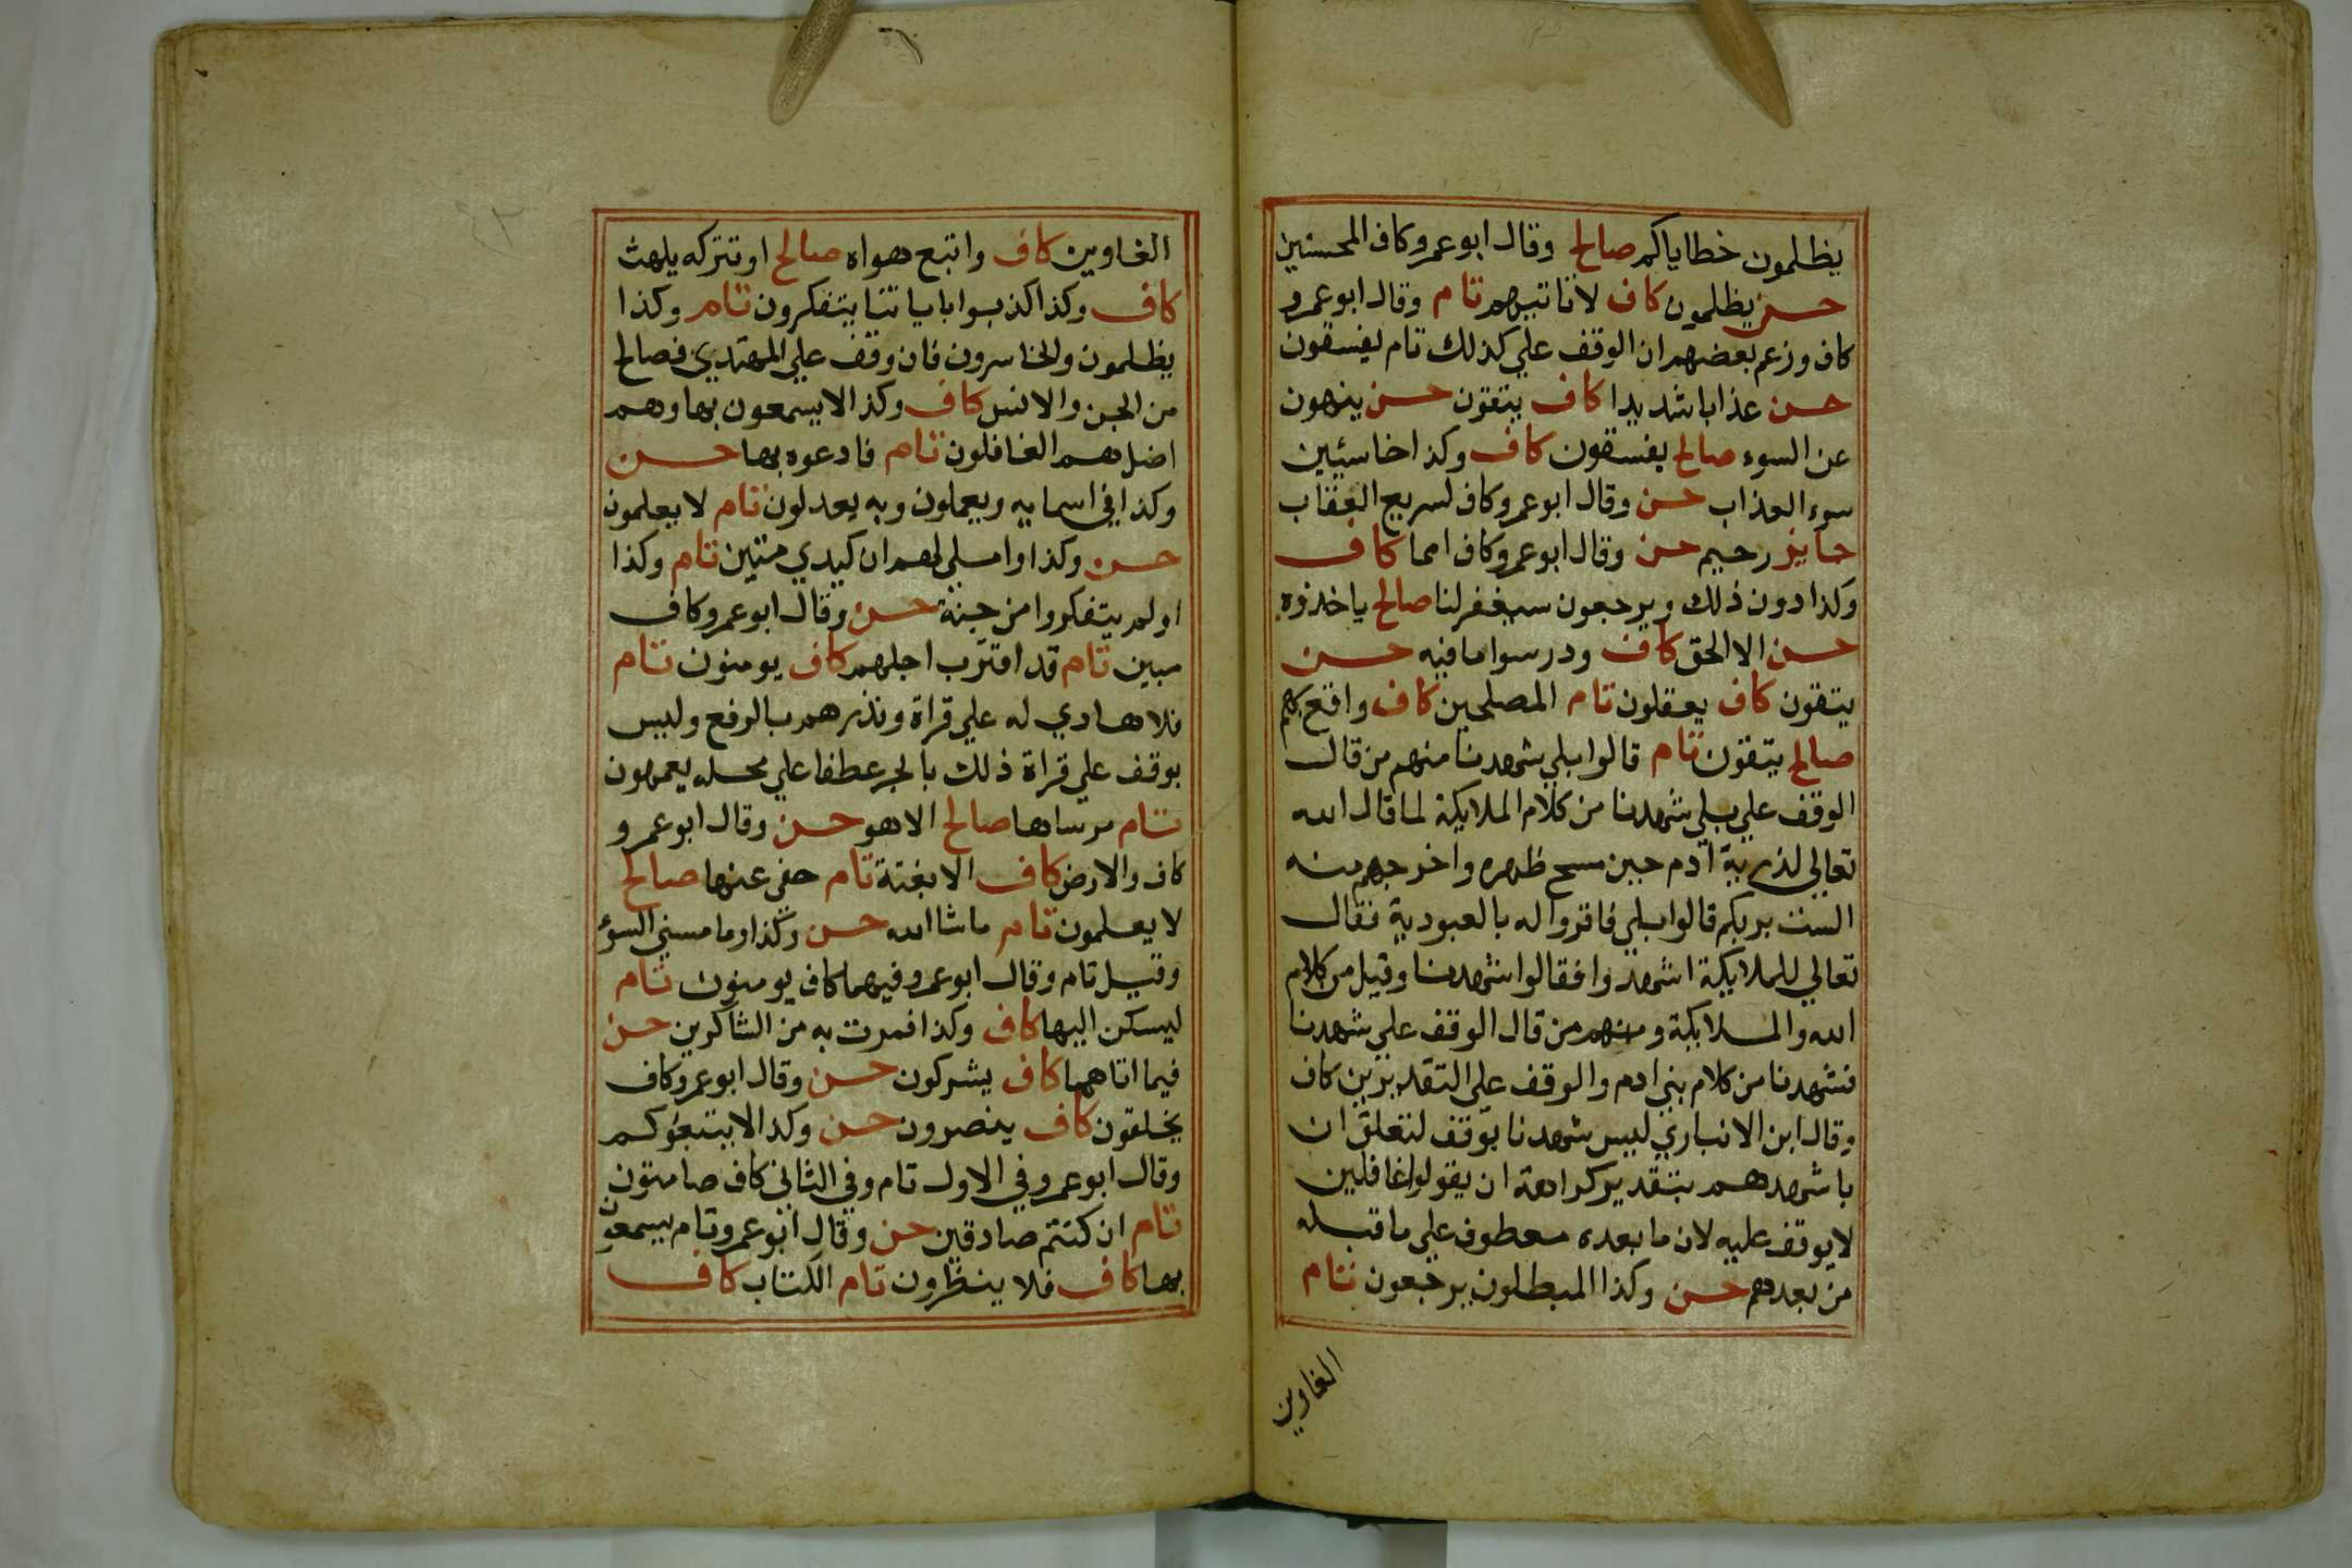 يظلمون خطاياكم صالح وقال ابو عمرو كاف المحسنين
حسن يظلمون كاف لا تاتيهم تام وقال ابو عمرو
كاف وزعم بعضهم ان الوقف علي كذلك تام يفسقون
حسن عذابا شديدا كاف يتقون حسن ينهون
عن السوء صالح يفسقون كاف وكذا خاسئين
سوء العذاب حسن وقال ابو عمرو كاف لسريع العقاب
جايز رحيم حسن وقال ابو عمرو كاف امما كاف
وكذا دون ذلك ويرجعون سيغفر لنا صالح ياخذوه
حسن الا الحق كاف ودرسوا ما فيه حسن
يتقون كاف يعقلون تام المصلحين كاف واقع بهم
صالح يتقون تام قالوا بلي شهدنا منهم من قال
الوقف علي بلي شهدنا من كلام الملايكة لما قال الله
تعالي لذرية آدم حين مسح ظهره واخرجهم منه
الست بربكم قالوا بلي فاقروا له بالعبودية فقال
تعالي للملايكة اشهدوا فقالوا شهدنا وقيل من كلام
الله والملايكة ومنهم من قال الوقف علي شهدنا
فشهدنا من كلام بني ادم والوقف علي التقديرين كاف
وقال ابن الانباري ليس شهدنا بوقف لتعلق ان
باشهدهم بتقدير كراهة ان يقولوا غافلين
لا يوقف عليه لان ما بعده معطوف علي ما قبله
من بعدهم حسن وكذا المبطلون يرجعون تام
الغاوين
الغاوين كاف واتبع هواه صالح او تتركه يلهث
كاف وكذا كذبوا باياتنا يتفكرون تام وكذا
يظلمون والخاسرون فان وقف علي المهتدي فصالح
من الجن والانس كاف وكذا لا يسمعون بها وهم
اضل هم الغافلون تام فادعوه بها حسن
وكذا في اسمايه ويعملون وبه يعدلون تام لا يعلمون
حسن وكذا واملي لهم ان كيدي متين تام وكذا
اولم يتفكروا من جنة حسن وقال ابو عمرو كاف
مبين تام قد اقترب اجلهم كاف يومنون تام
فلا هادي له علي قراة ونذرهم بالرفع وليس
بوقف علي قراة ذلك بالجر عطفا علي محله يعمهون
تام مرساها صالح الا هو حسن وقال ابو عمرو
كاف والارض كاف الا بغتة تام حفي عنها صالح
لا يعلمون تام ما شا الله حسن وكذا وما مسني السؤ
وقيل تام وقال ابو عمرو فيهما كاف يومنون تام
ليسكن اليها كاف وكذا فمرت به من الشاكرين حسن
فيما اتاهما كاف يشركون حسن وقال ابو عمرو كاف
يخلقون كاف ينصرون حسن وكذا لا يتبعوكم
وقال ابو عمرو في الاول تام وفي الثاني كاف صامتون
تام ان كنتم صادقين حسن وقال ابو عمرو تام يسمعون
بها كاف فلا ينظرون تام الكتاب كاف